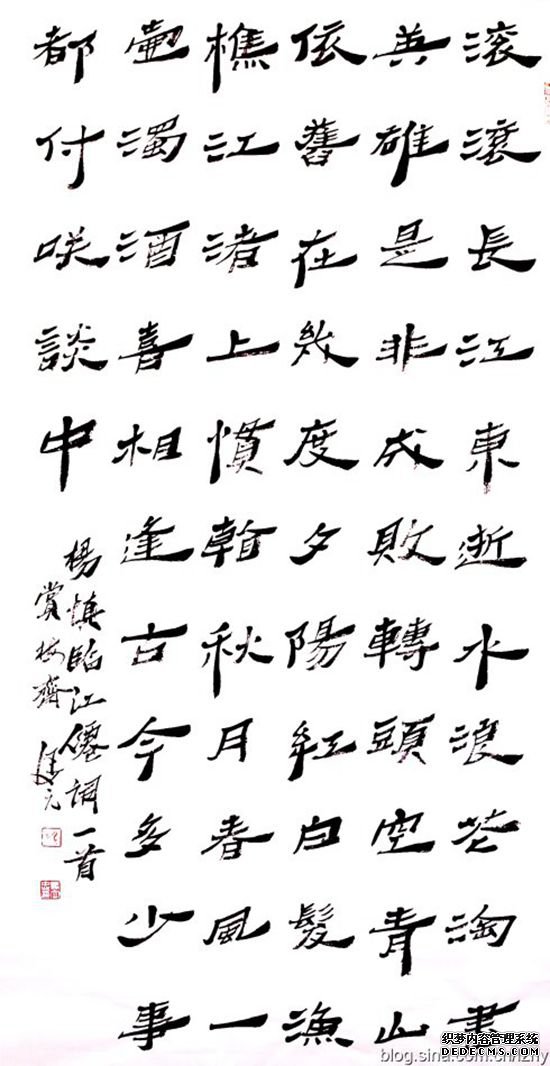 滚滾長江東逝水浪花淘盡
英雄是非成敗轉頭空青山
依舊在幾度夕陽紅白髮漁
樵江渚上慣看秋月春風一
壺濁酒喜相逢古今多少事
都付咲談中
楊慎臨江僊詞一首
賞梅齋
织梦内容管理系统
DEDECMS.COM